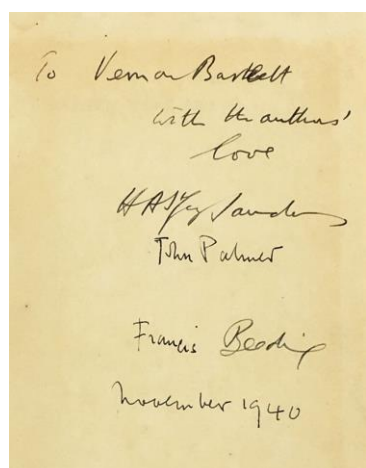 To Vernon Bartlett
with the authors'
love
Saunders
John Palmer
Francis Beeding
November 1940